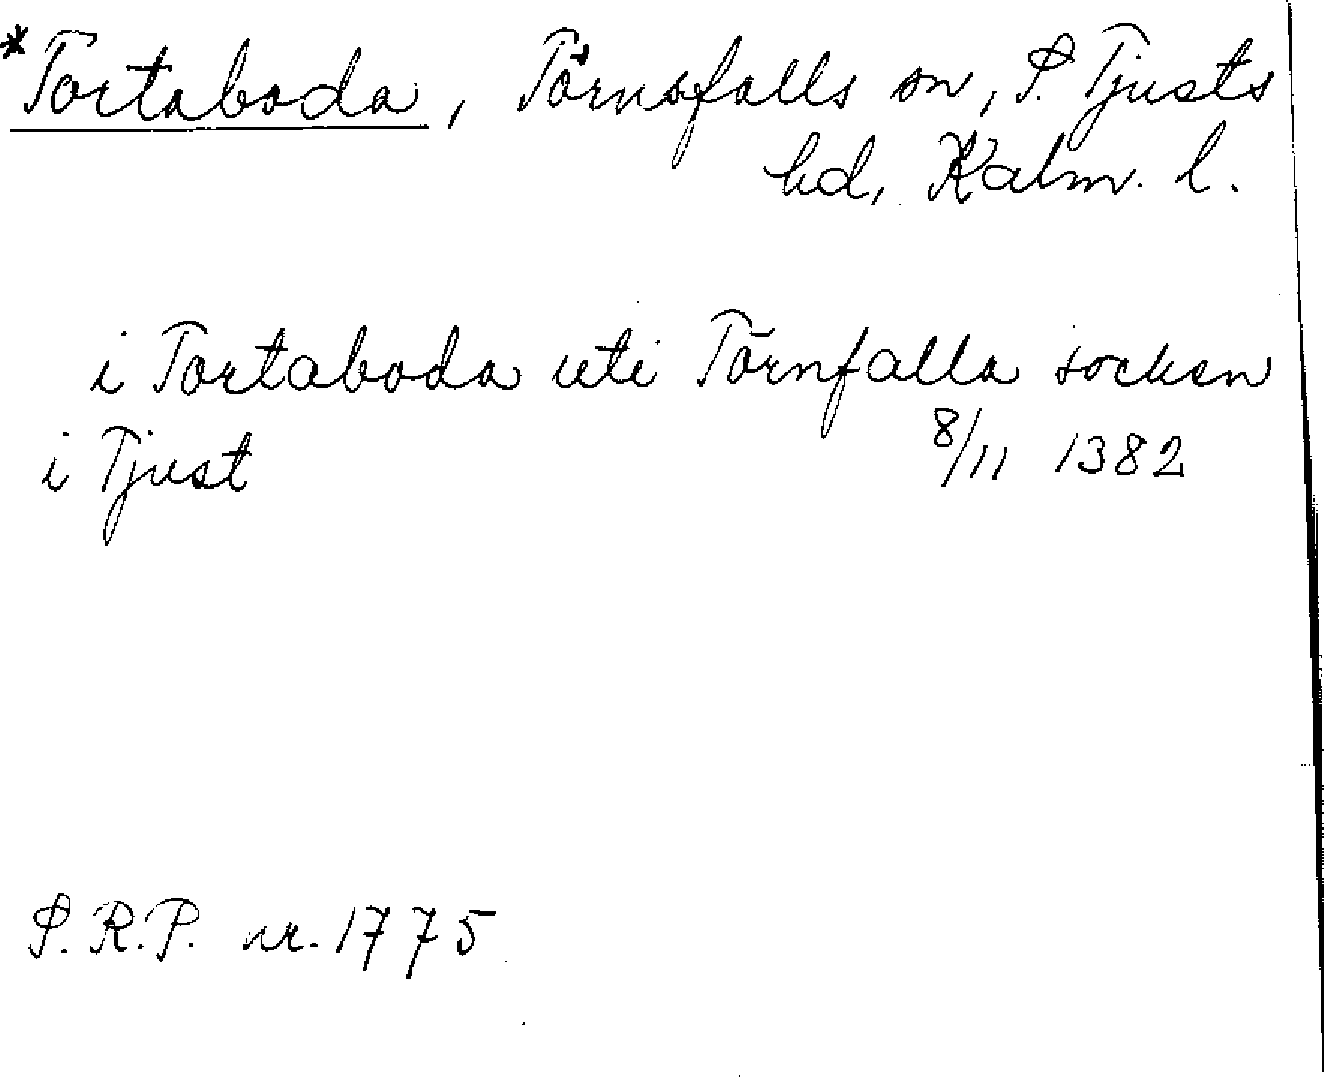 *Tortaboda, Törnsfalls sn, S. Tjusts
hd, Kalm. l.
i Tortaboda uti Törnfalla socken
i Tjust 8/11 1382
S.R.P. nr. 1775